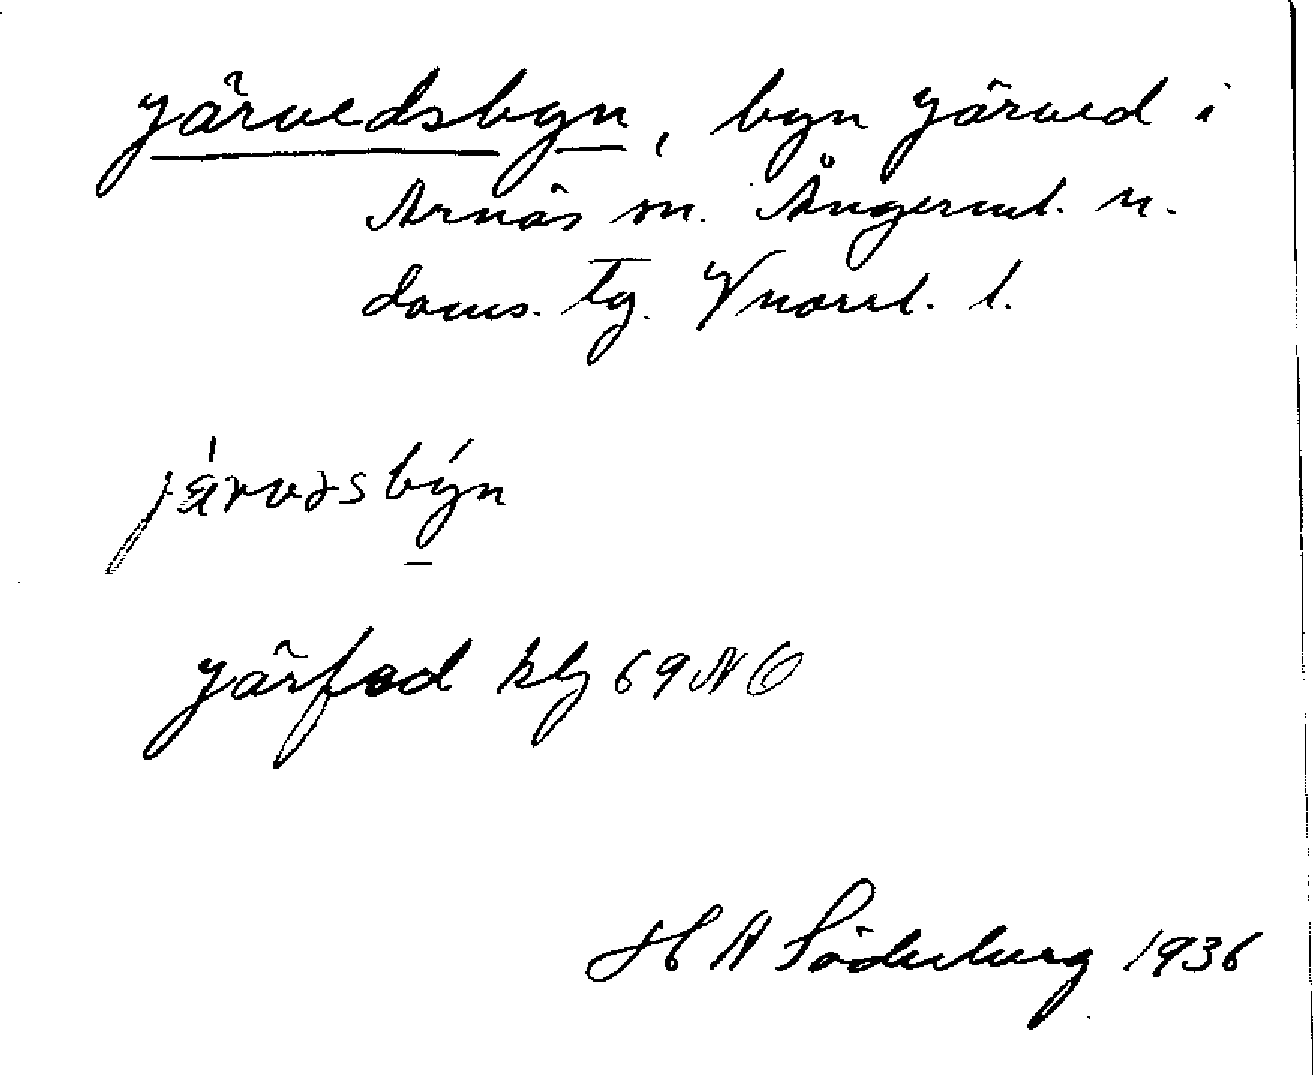 Järvedsbyn, byn Järved i
Arnäs sn. Ångerml. n.
doms. tg. Vnorrl. l.
järvəsbýn
Järfed kbl 69 NO
H A Söderberg 1936